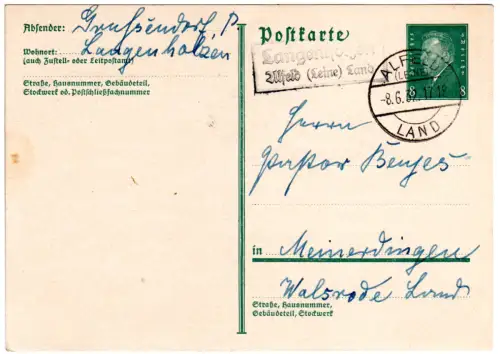 Absender: Grussendorf, P.
Wohnort: Langenholzen
(auch Zustell- oder Leitpostamt)
Straße, Hausnummer, Gebäudeteil,
Stockwerk od. Postschließfachnummer
Postkarte
Langenholzen
Alfeld (Leine) Land
ALFELD
(LEINE)
-8.6.32.17-18
LAND
8 8
Herrn
Pastor Benjes
in Meinerdingen
Walsrode Land
Straße, Hausnummer,
Gebäudeteil, Stockwerk